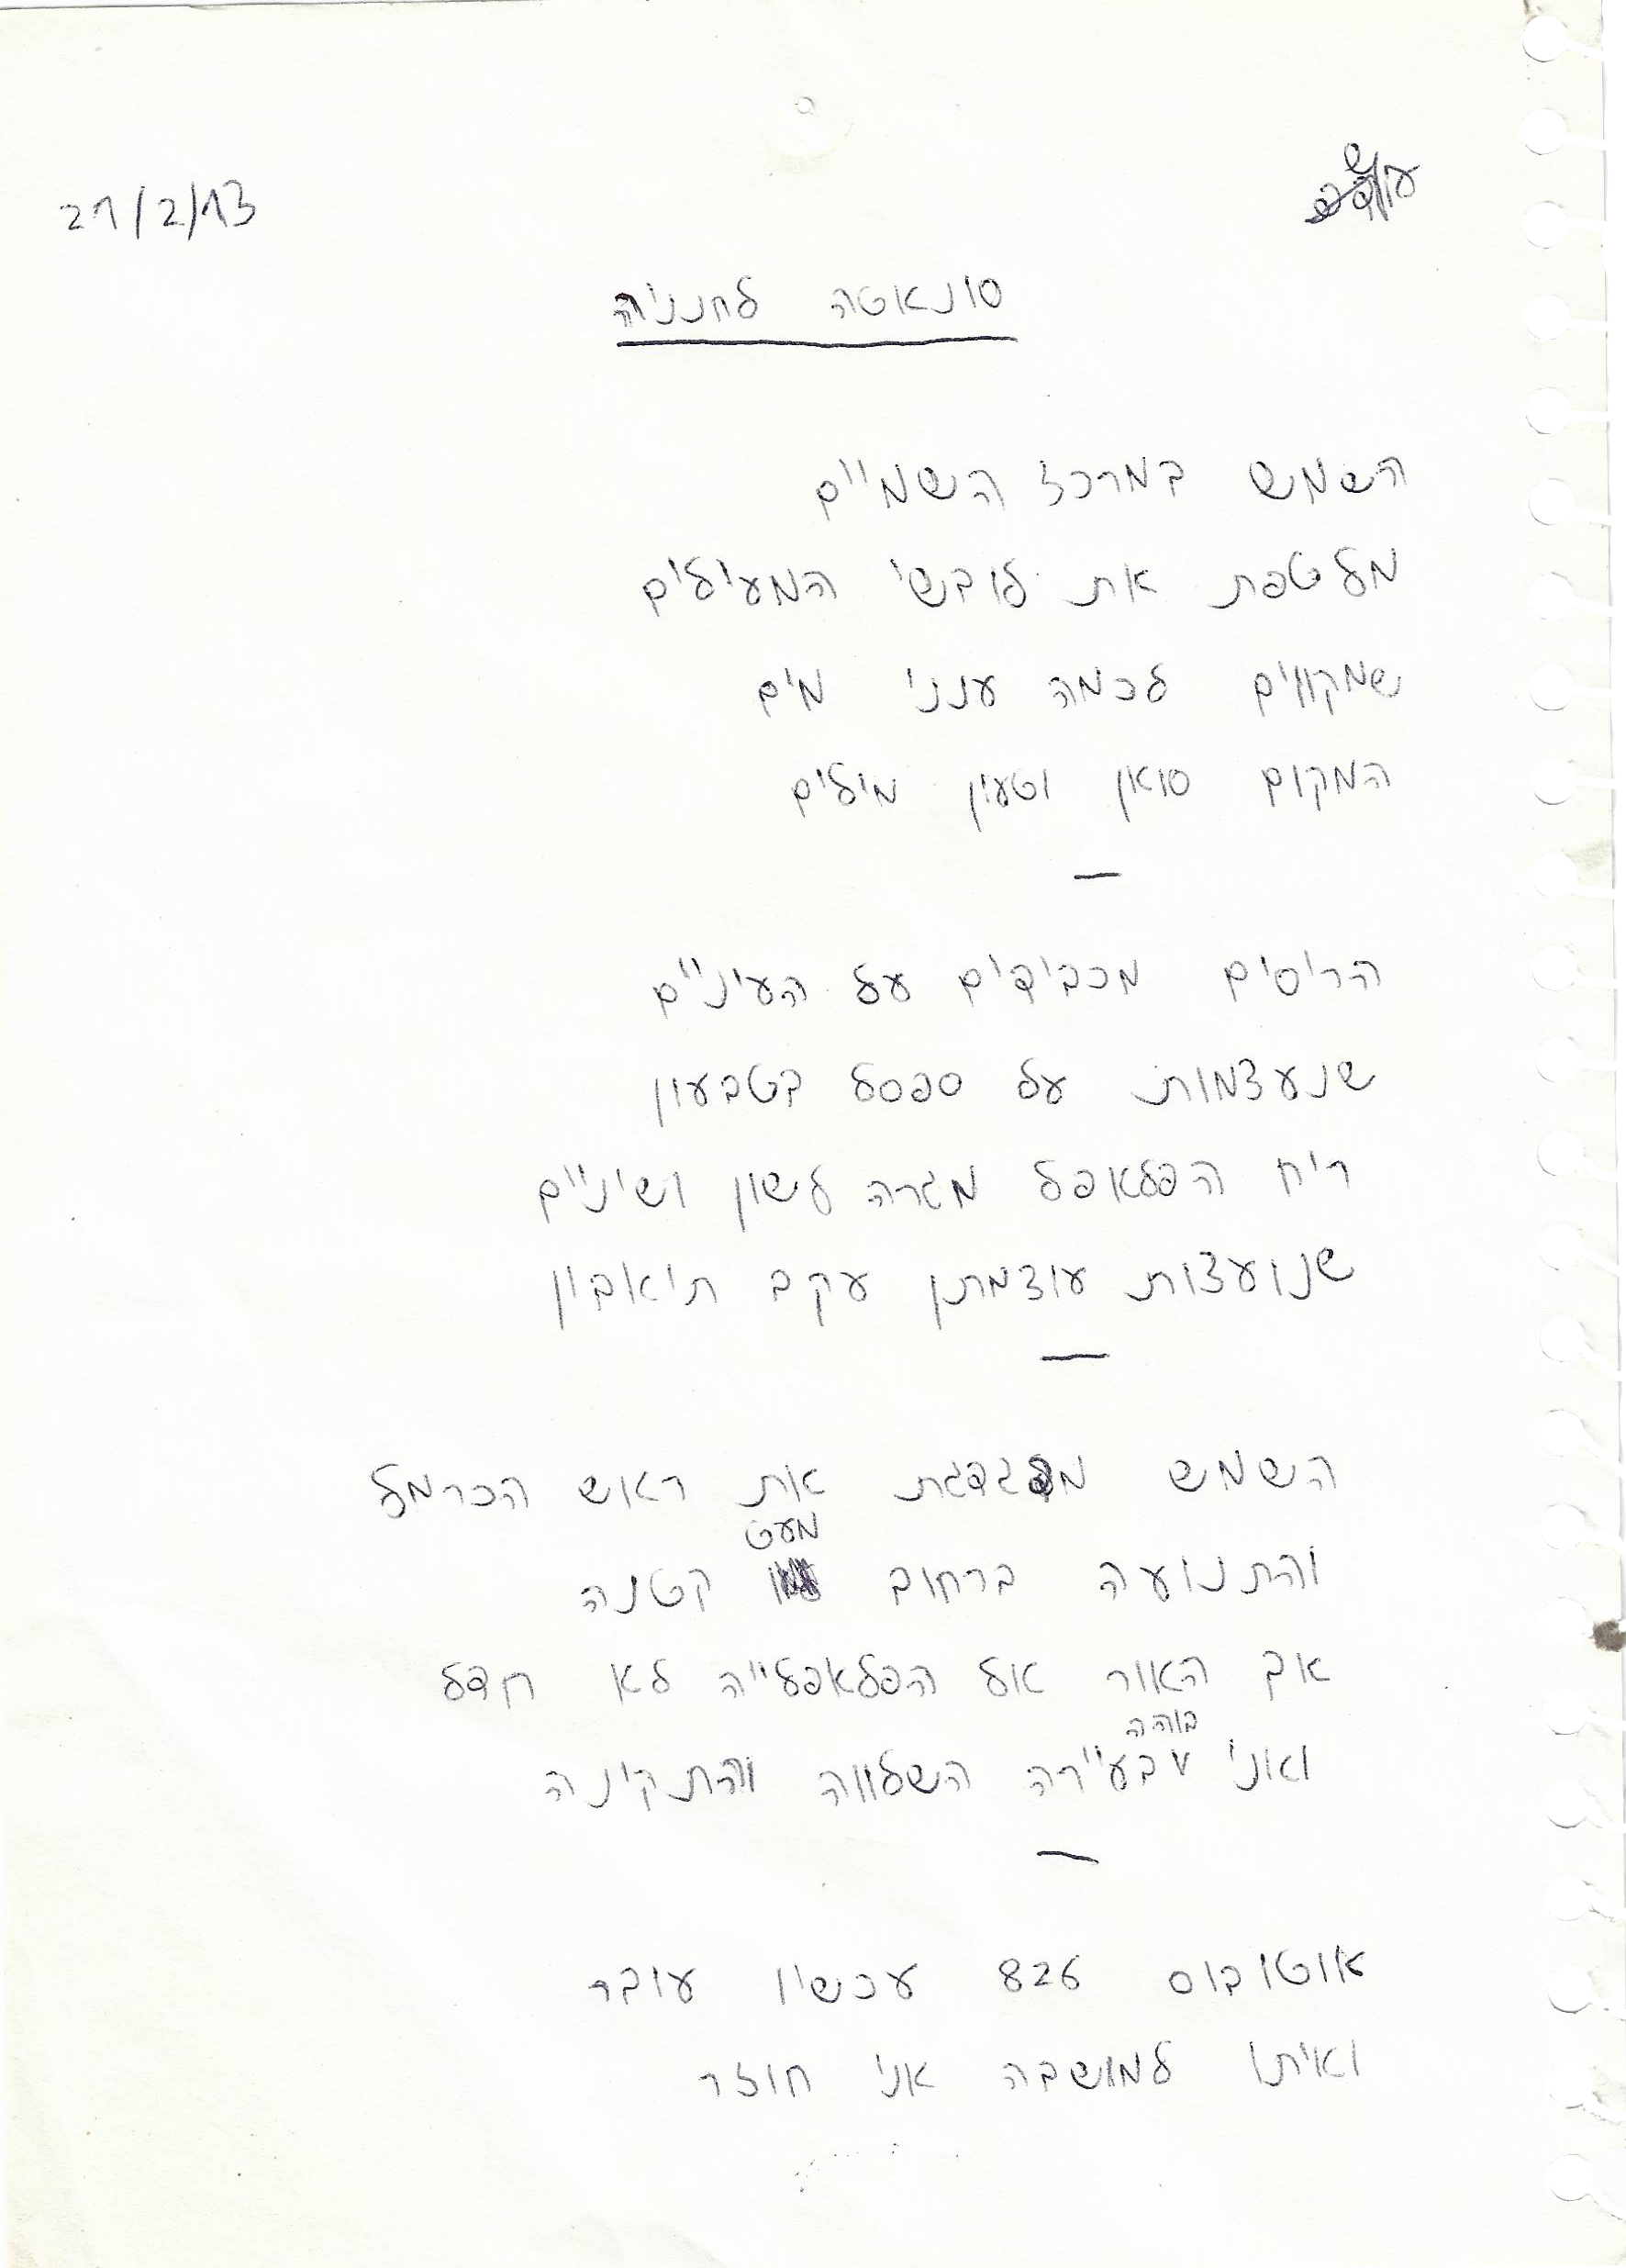 21/2/13
סונאטה לחנניה
השמש במרכז השמיים
מלטפת את לובשי המעילים
שמקווים לכמה ענני מים
המקום סואן וטעון מילים
—
הריסים מכבידים על העיניים
שנעצמות על ספסל בטבעון
ריח הפלאפל מגרה לשון ושיניים
שנועצות עוצמתן עקב תיאבון
—
השמש מדגדגת את ראש הכרמל
מעט
והתנועה ברחוב קטנה
אך האור אל הפלאפלייה לא חדל
בוהה
ואני בעיירה השלווה והתקינה
—
אוטובוס 826 עכשיו עובר
ואיתו למושבה אני חוזר